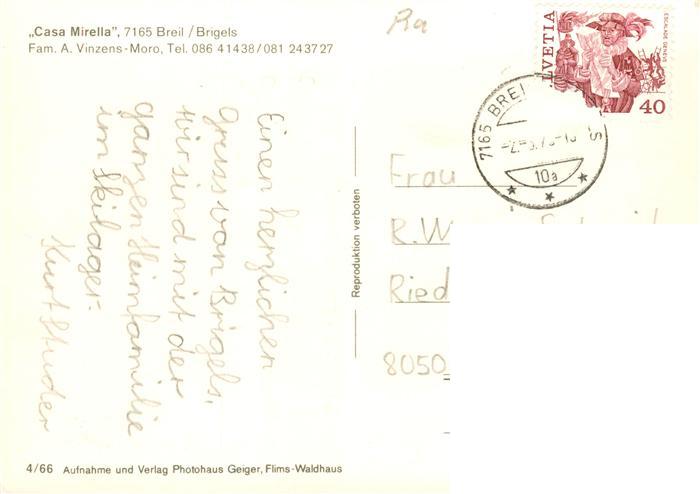 „Casa Mirella", 7165 Breil / Brigels
Fam. A. Vinzens-Moro, Tel. 086 41438/081 243727
Ra
ESCALADE GENÈVE
LVETIA
40
7165 BREI
S
10a
Einen herzlichen
Gruss von Brigels,
wir sind mit der
ganzen Heimfamilie
im Skilager.
Kurt Studer
Reproduktion verboten
Frau
R.W
Ried
8050
4/66 Aufnahme und Verlag Photohaus Geiger, Flims-Waldhaus